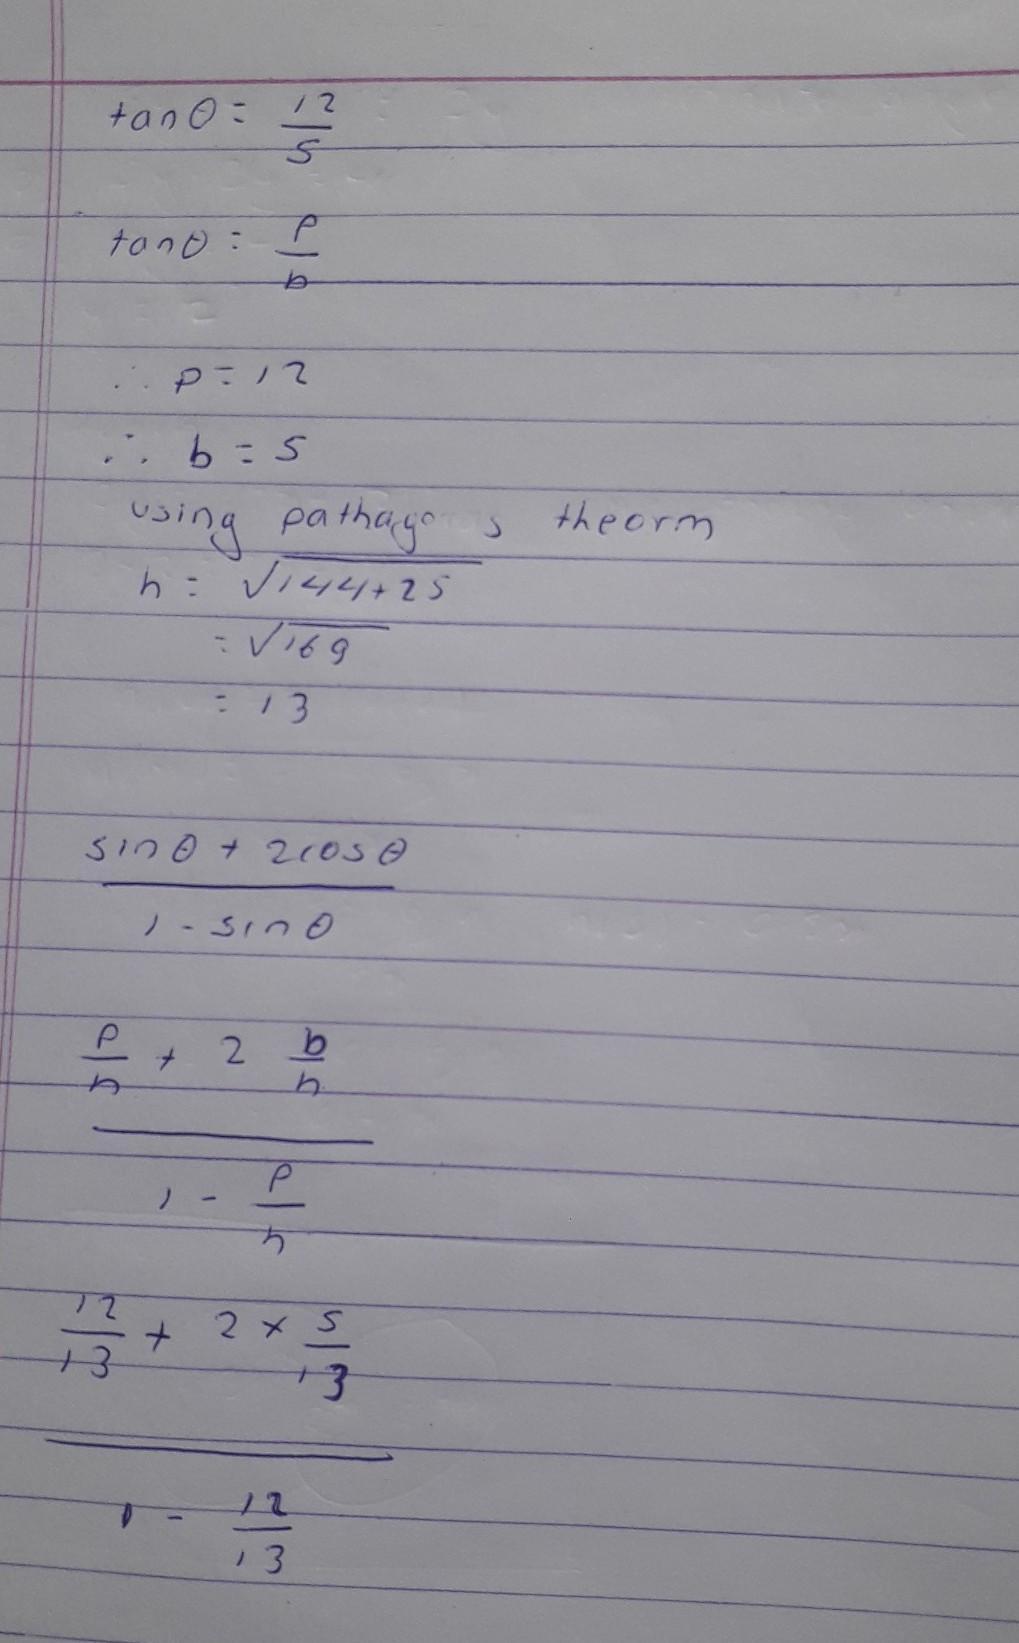 tanθ = 12/5
tanθ = p/b
∴ p = 12
∴ b = 5
using pathago s theorm
h = √144+25
= √169
= 13
sinθ + 2cosθ
1 - sinθ
p/h + 2 b/h
1 - p/h
12/13 + 2 × 5/13
1 - 12/13